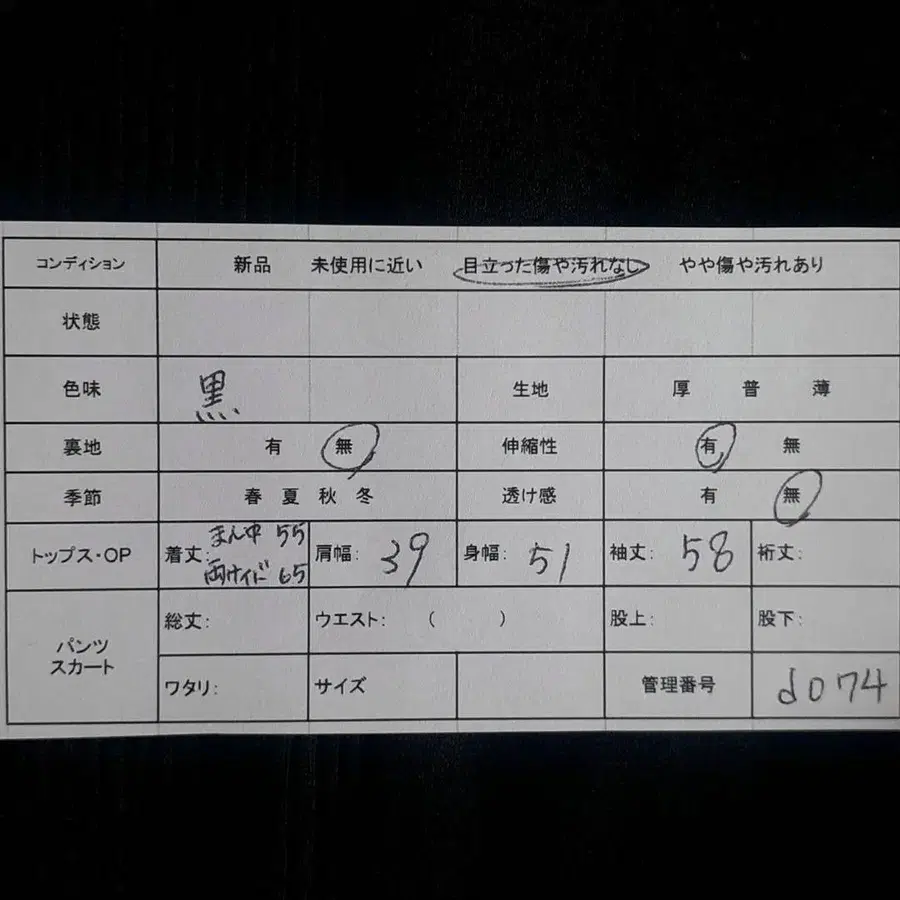 コンディション 新品 未使用に近い 目立った傷や汚れなし やや傷や汚れあり
状態
色味 黒 生地 厚 普 薄
裏地 有 無 伸縮性 有 無
季節 春 夏 秋 冬 透け感 有 無
トップス・OP 着丈: まん中 55 両サイド 65 肩幅: 39 身幅: 51 袖丈: 58 裄丈:
パンツ スカート 総丈: ウエスト: ( ) 股上: 股下:
ワタリ: サイズ 管理番号 d074